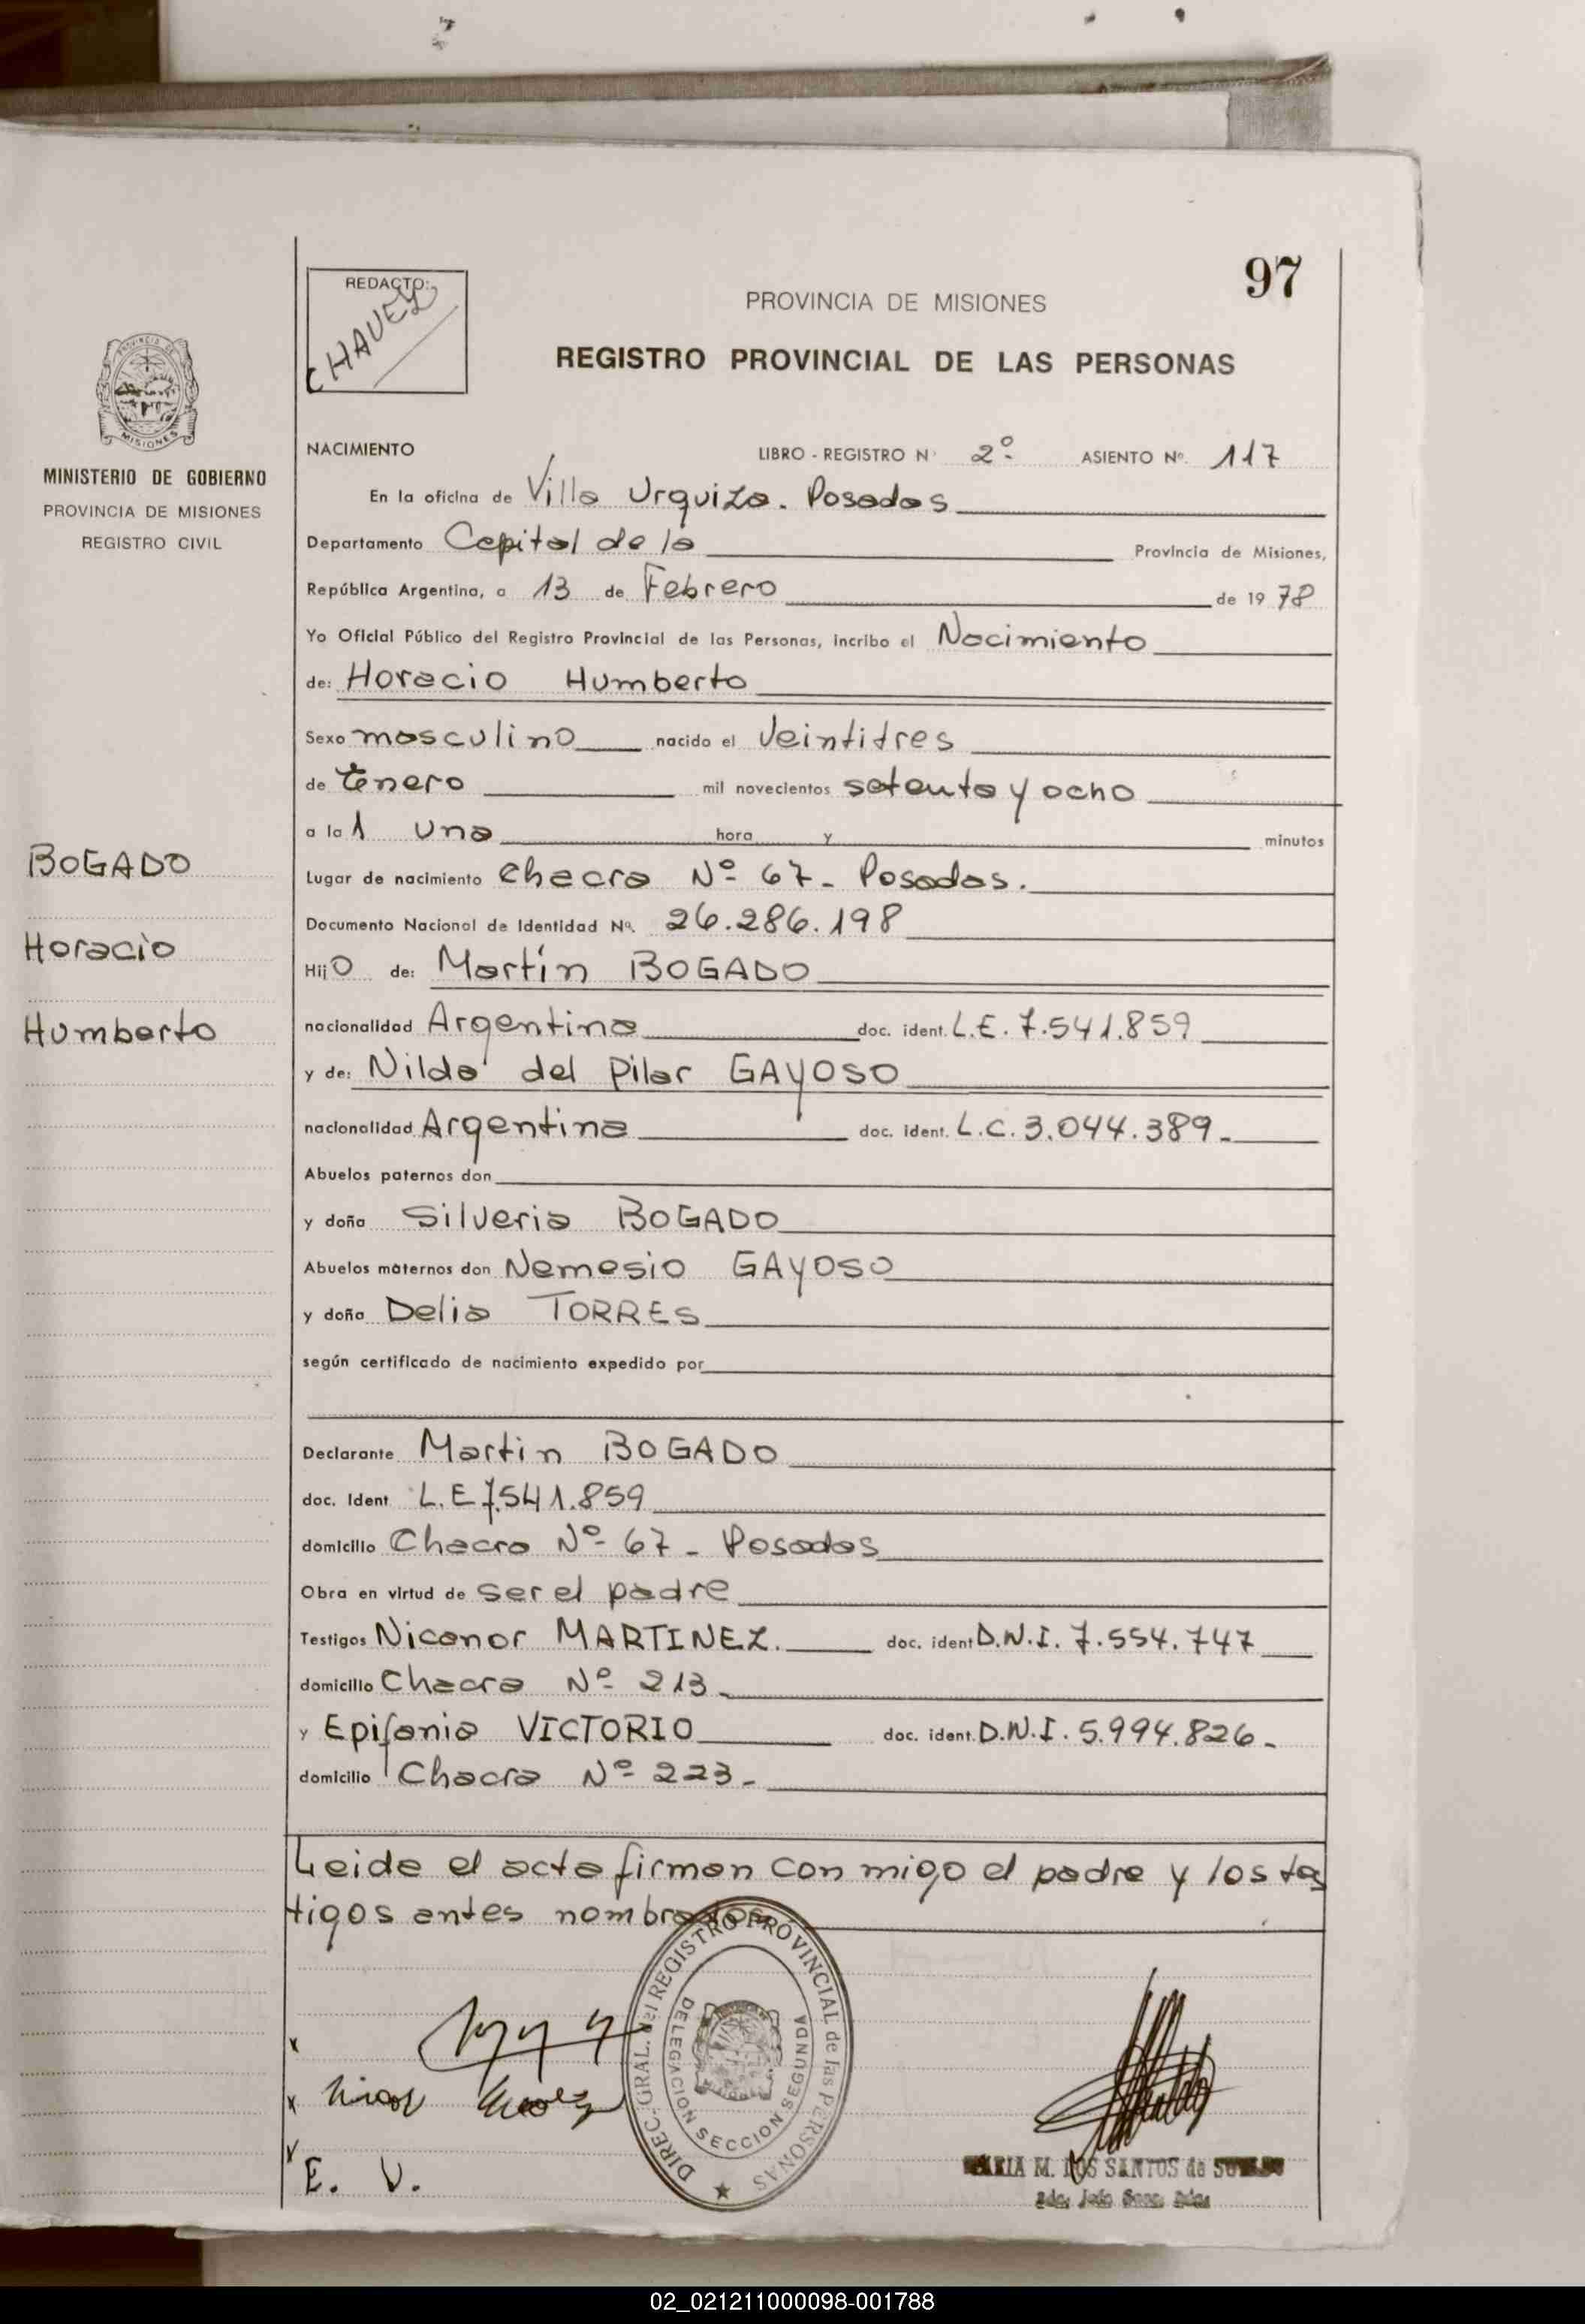 97
REDACTO:
CHAVEZ
PROVINCIA DE MISIONES
REGISTRO PROVINCIAL DE LAS PERSONAS
PROVINCIA DE
MISIONES
MINISTERIO DE GOBIERNO
PROVINCIA DE MISIONES
REGISTRO CIVIL
BOGADO
Horacio
Humberto
NACIMIENTO LIBRO - REGISTRO N° 2º ASIENTO Nº. 117
En la oficina de Villa Urquiza. Posadas
Departamento Capital de la Provincia de Misiones,
República Argentina, a 13 de Febrero de 1978
Yo Oficial Público del Registro Provincial de las Personas, incribo el Nacimiento
de: Horacio Humberto
Sexo masculino nacido el Veintitres
de Enero mil novecientos setenta y ocho
a la 1 una hora y minutos
Lugar de nacimiento Chacra Nº 67 - Posadas.
Documento Nacional de Identidad Nº. 26.286.198
Hijo de: Martín BOGADO
nacionalidad Argentina doc. ident. L.E. 7.541.859
y de: Nilda del Pilar GAYOSO
nacionalidad Argentina doc. ident. L.C. 3.044.389.-
Abuelos paternos don
y doña Silveria BOGADO
Abuelos maternos don Nemesio GAYOSO
y doña Delia TORRES
según certificado de nacimiento expedido por
Declarante Martin BOGADO
doc. Ident L.E 7.541.859
domicilio Chacra Nº 67 - Posadas
Obra en virtud de ser el padre
Testigos Nicanor MARTINEZ. doc. ident D.N.I. 7.554.747
domicilio Chacra Nº 213 -
y Epifania VICTORIO doc. ident. D.N.I. 5.994.826 -
domicilio Chacra Nº 223 -
Leida el acta firman con migo el padre y los tes
tigos antes nombrados
DIREC. GRAL. del REGISTRO PROVINCIAL de las PERSONAS
DELEGACION SECCION SEGUNDA
E. V.
MARIA M. DOS SANTOS de
02_021211000098-001788